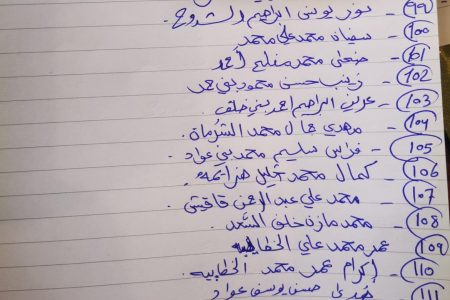 99 - نور يوسف ابراهيم الشدوح.
100 - سيناء محمد علي محمد
101 - ضحى محمد مفلح أحمد
102 - زينب حسن محمود بني حمد
103 - عرين ابراهيم احمد بني خلف
104 - مهدي جمال محمد الشرمان.
105 - فراس سليم محمد بني عواد.
106 - كمال محمد خليل هزايمه.
107 - محمد علي عبد الرحمن قاقيش
108 - محمد مازن خلف السعد
109 عمر محمد علي الخطايبه
110 - إكرام عمر محمد الخطايبه.
111 حسن يوسف عواد